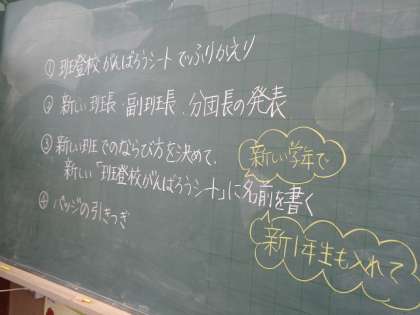 ① 班登校がんばろうシートでふりかえり
② 新しい班長・副班長、分団長の発表
③ 新しい班でのならび方を決めて、
新しい「班登校がんばろうシート」に名前を書く
新しい学年で
新1年生も入れて
④ バッジの引きつぎ